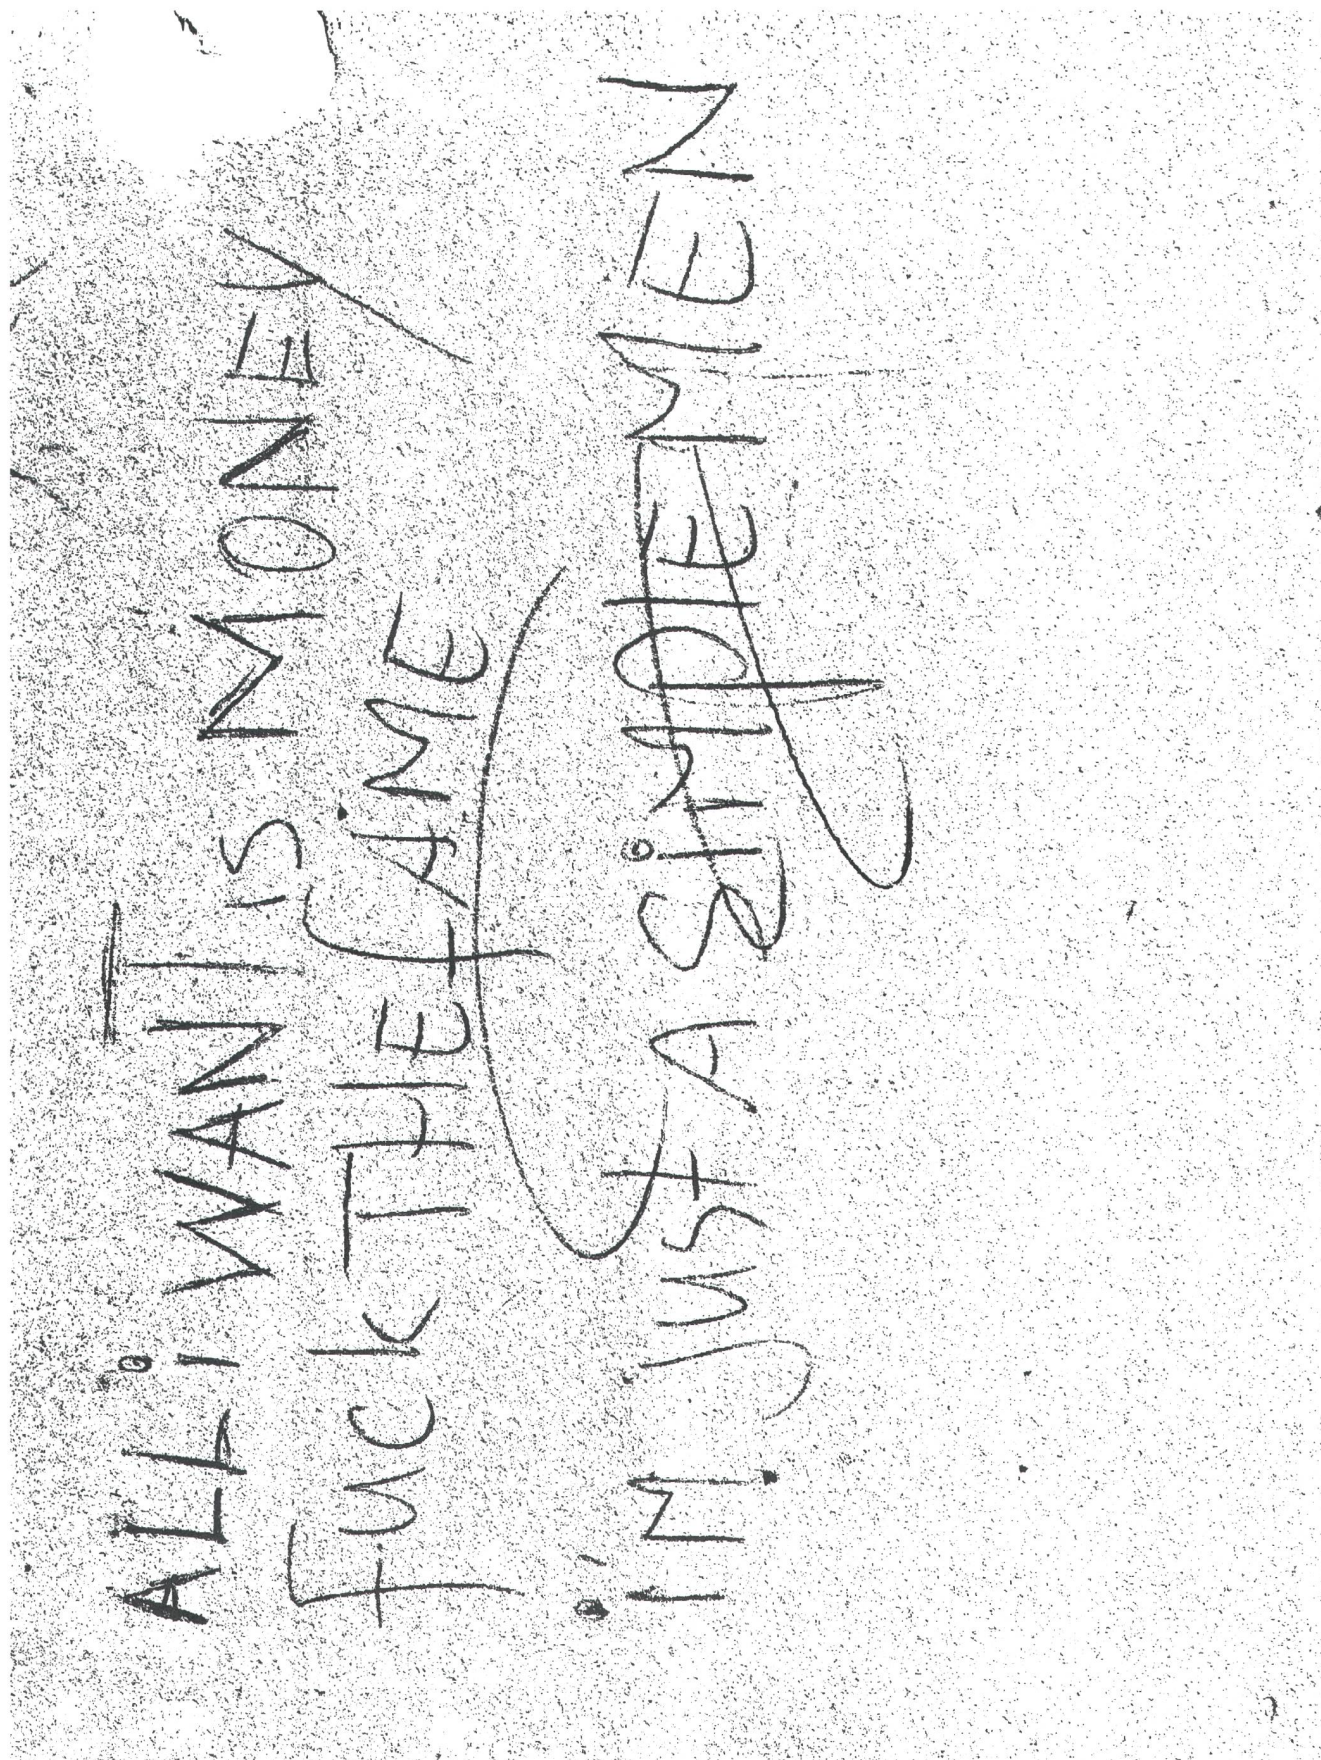 ALL i WANT IS MONEY
FUCK THE fAME
i'M JUST A SiMPlE MEN